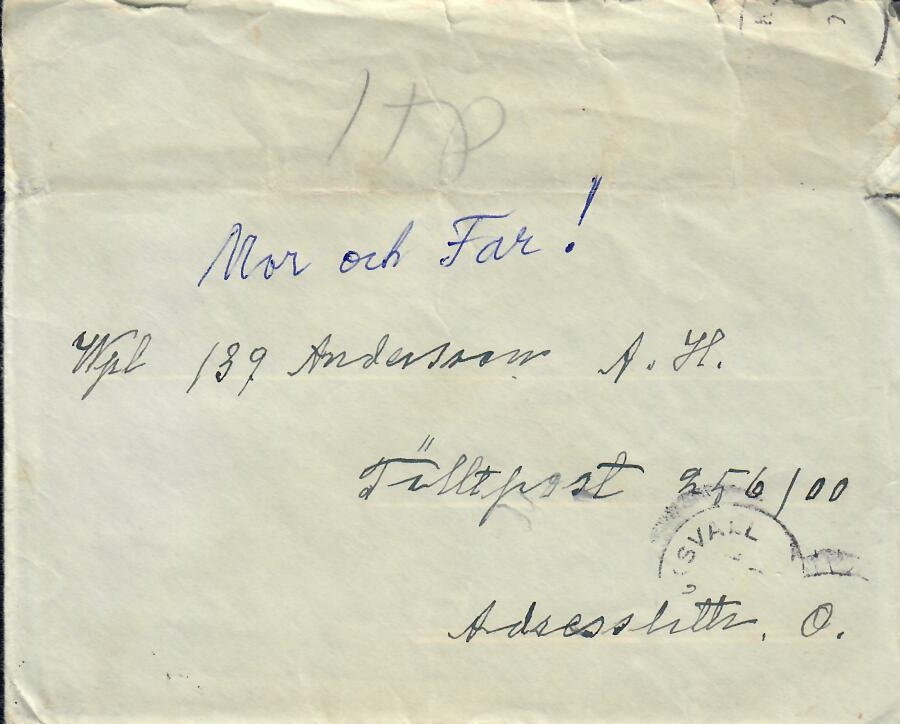 Mor och Far!
Wpl 139 Andersson A. H.
Fälltpost 256/00
SVALL
Adresslittr. O.